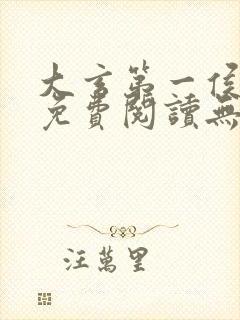 大言第一侯
免費閱讀無
汪萬里